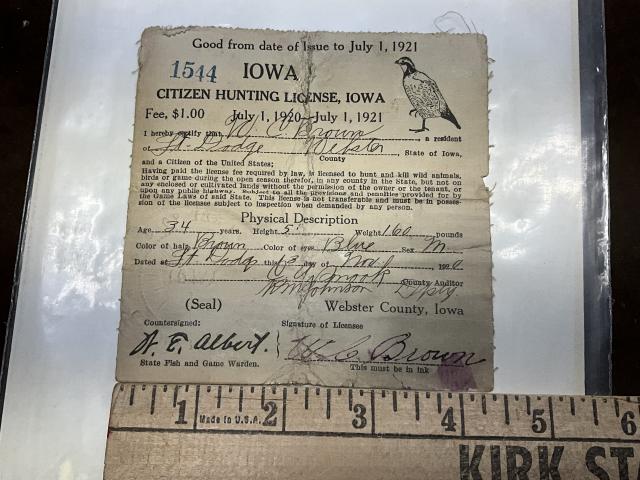 Good from date of Issue to July 1, 1921
1544 IOWA
CITIZEN HUNTING LICENSE, IOWA
Fee, $1.00 July 1, 1920—July 1, 1921
I hereby certify that W. C. Brown, a resident
of Ft. Dodge Webster, State of Iowa,
County
and a Citizen of the United States;
Having paid the license fee required by law, is licensed to hunt and kill wild animals,
birds or game during the open season therefor, in any county in the State, but not on
any enclosed or cultivated lands without the permission of the owner or the tenant, or
upon any public highway. Subject to all the provisions and penalties provided for by
the Game Laws of said State. This license is not transferable and must be in posses-
sion of the licensee subject to inspection when demanded by any person.
Physical Description
Age 34 years. Height 5 Weight 160 pounds
Color of hair Brown Color of eyes Blue Sex M
Dated at Ft. Dodge this day of Nov 1920
County Auditor
R M Johnson Deputy
(Seal) Webster County, Iowa
Countersigned: Signature of Licensee
A. E. Albert. W. C. Brown
State Fish and Game Warden. This must be in ink
1 2 3 4 5 6
Made in U.S.A.
KIRK ST